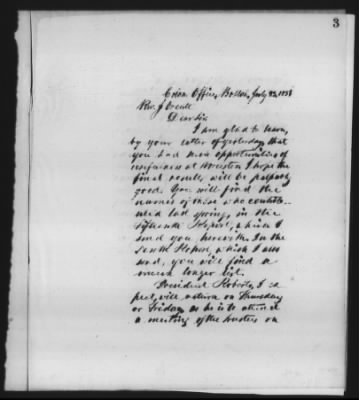 3
Colon. Office, Boston, July 23, 1858
Rev. J. Orcutt
Dear Sir
I am glad to learn,
by your letter of yesterday, that
you had such opportunities of
usefulness at I hope the
final results will be perfectly
good. You will find the
names of those who contrib-
uted last spring, in the
fifteenth Report, which I
send you herewith. In the
tenth Report, which I also
send, you will find a
much longer list.
President Roberts, I ex
pect, will return on Thursday
or Friday, as he is to attend
a meeting of the trustees on